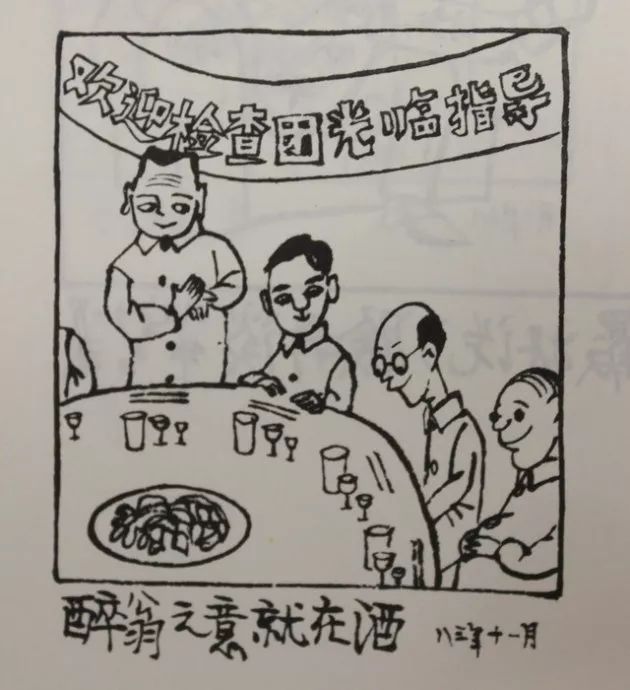 欢迎检查团光临指导
醉翁之意就在酒 八三年十一月